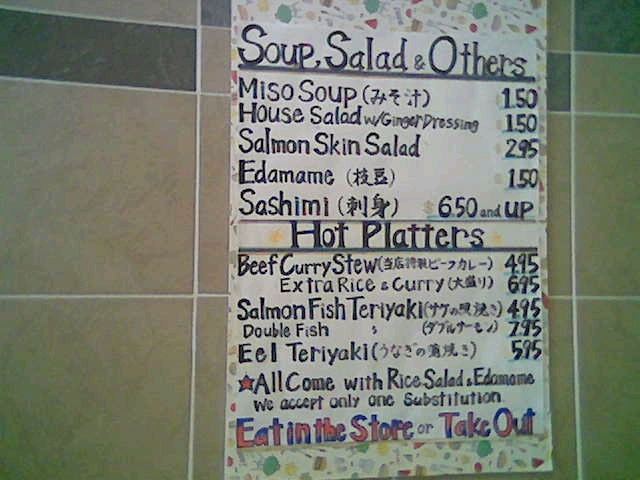 Soup, Salad & Others
Miso Soup (みそ汁) 1.50
House Salad w/Ginger Dressing 1.50
Salmon Skin Salad 2.95
Edamame (枝豆) 1.50
Sashimi (刺身) 6.50 and UP
Hot Platters
Beef Curry Stew (当店特製ビーフカレー) 4.95
Extra Rice & Curry (大盛り) 6.95
Salmon Fish Teriyaki (サケの照焼き) 4.95
Double Fish (ダブルサーモン) 7.95
Eel Teriyaki (うなぎの蒲焼き) 5.95
★All Come with Rice Salad & Edamame
We accept only one Substitution.
Eat in the Store or Take Out